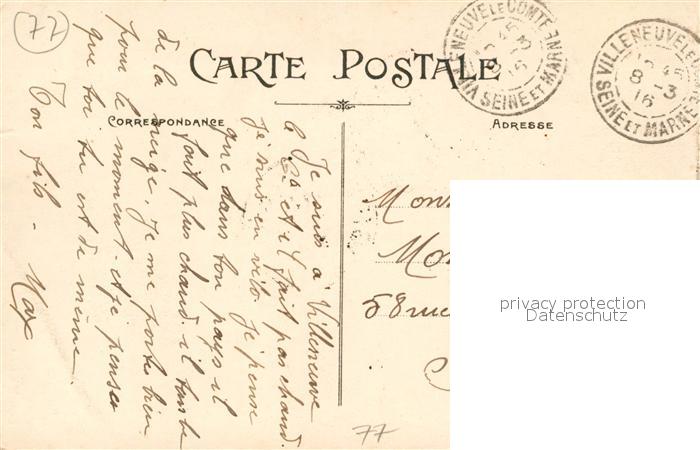 77
CARTE POSTALE
VILLENEUVE LE COMTE
SEINE ET MARNE
VILLENEUVE LE
12 45
8 - 3
16
SEINE ET MARNE
CORRESPONDANCE
ADRESSE
Je suis à Villeneuve
le et il fait pas chaud.
Je suis en vélo Je pense
que dans ton pays il
fait plus chaud il tombe
de la neige. Je me porte bien
pour le moment et je pense
que toi tu est de même.
Ton fils - Max
58 rue
77
privacy protection
Datenschutz